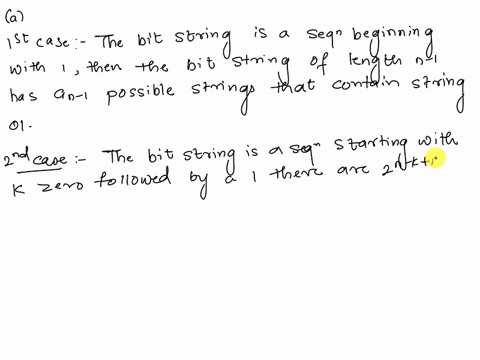 (a)
1st case :- The bit string is a seqn beginning
with 1, then the bit string of length n-1
has an-1 possible strings that contain string
01.
2nd case :- The bit string is a seqn starting with
K zero followed by a 1 there are 2n-k+1